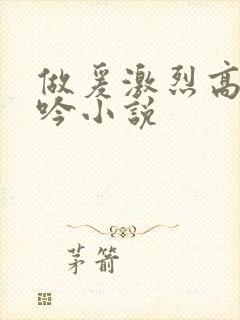 做爰激烈高
吟小說
茅箭